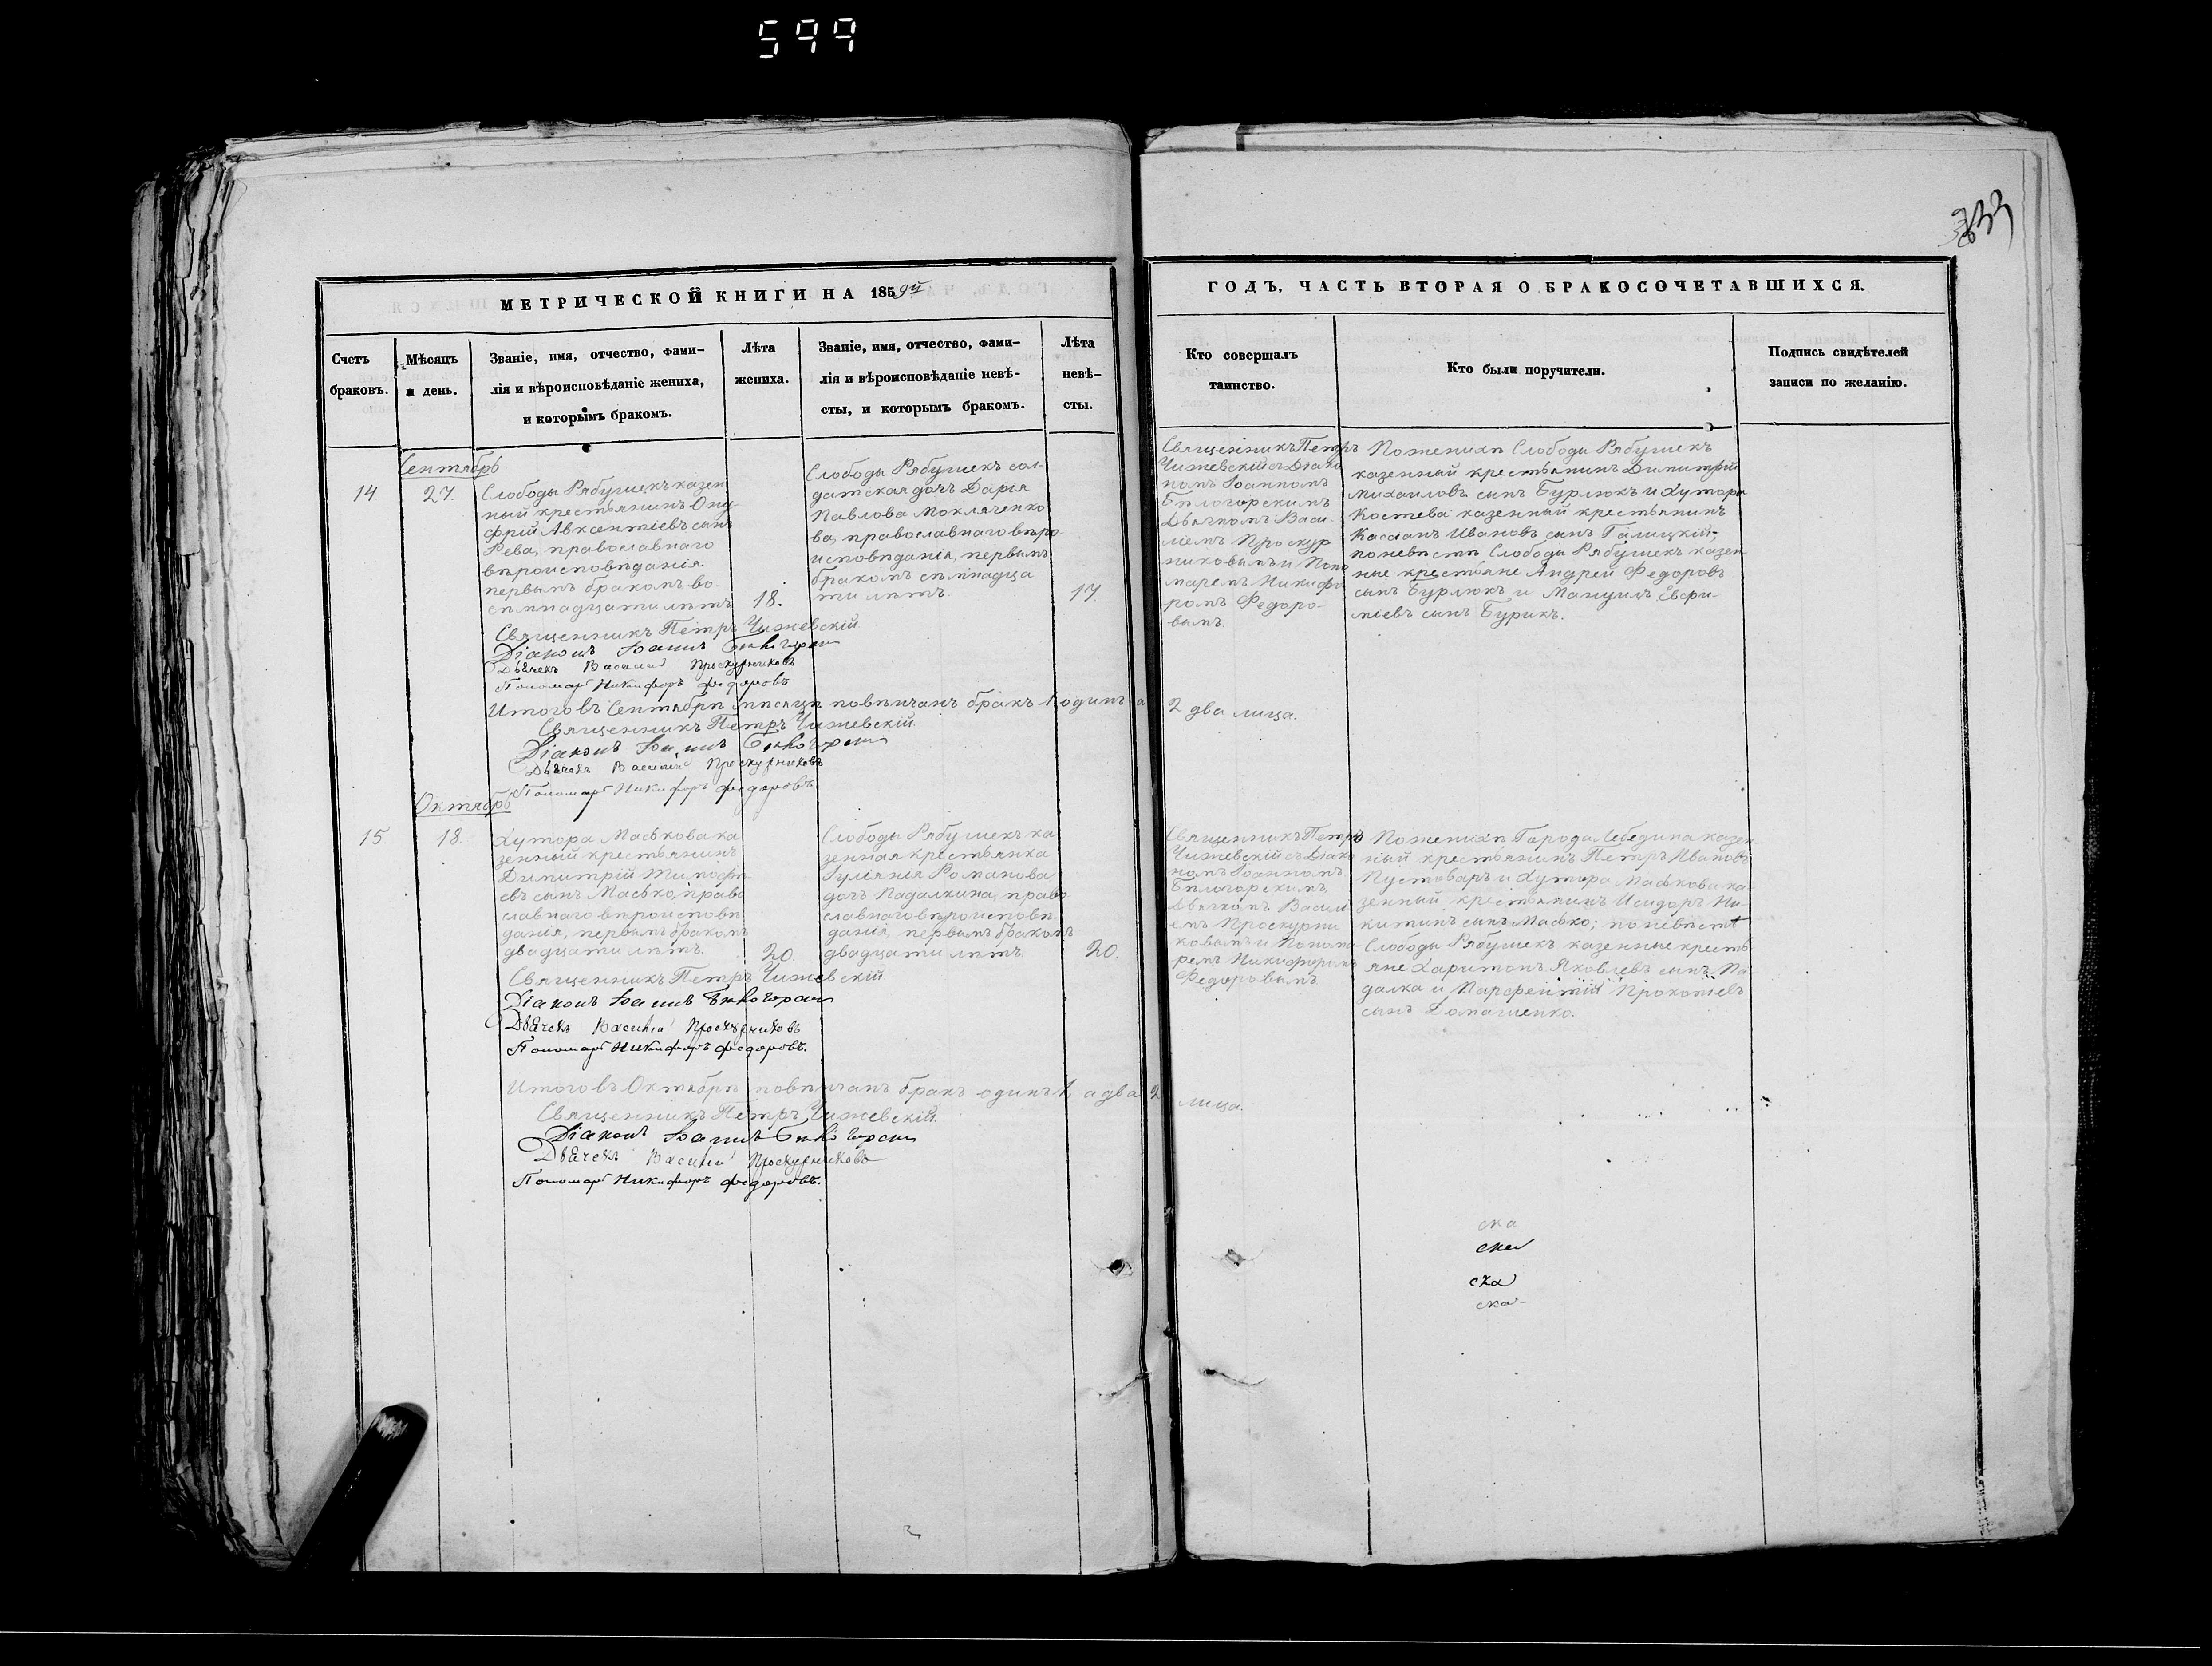 599
333
МЕТРИЧЕСКОЙ КНИГИ НА 1859й
ГОДЪ, ЧАСТЬ ВТОРАЯ О БРАКОСОЧЕТАВШИХСЯ.
Счетъ
браковъ.
Мѣсяцъ
и день.
Званіе, имя, отчество, фами-
лія и вѣроисповѣданіе жениха,
и которымъ бракомъ.
Лѣта
жениха.
Званіе, имя, отчество, фами-
лія и вѣроисповѣданіе невѣ-
сты, и которымъ бракомъ.
Лѣта
невѣ-
сты.
Кто совершалъ
таинство.
Кто были поручители.
Подпись свидѣтелей
записи по желанію.
Сентябрь
14
27.
Слободы Рябушекъ казен
ный крестьянинъ Ону
фрій Авксентіевъ сынъ
Рева, православнаго
вѣроисповѣданія
первымъ бракомъ во
сѣмнадцати лѣтъ
18.
Слободы Рябушекъ сол-
датская дочь Дарія
Павлова Мокляченко
ва, православнаго вѣро
исповѣданія, первымъ
бракомъ сѣмнадца
ти лѣтъ.
17.
Священникъ Петръ
Чижевскій съ Діако
номъ Іоанномъ
Бѣлогорскимъ
Дьячкомъ Васи-
ліемъ Проскур
никовымъ и Поно
маремъ Никифо
ромъ Федоро-
вымъ.
По женихѣ Слободы Рябушекъ
казенный крестьянинъ Димитрій
Михаиловъ сынъ Бурлюкъ и Хутора
Костева казенный крестьянинъ
Кассіанъ Ивановъ сынъ Галицкій;
по невѣстѣ Слободы Рябушекъ казен
ные крестьяне Андрей Федоровъ
сынъ Бурлюкъ и Мануилъ Евфи-
міевъ сынъ Бурикъ.
Священникъ Петръ Чижевскій
Діаконъ Іоаннъ Бѣлогорскій
Дьячекъ Василій Проскурниковъ
Пономарь Никифоръ Федоровъ
Итого въ Сентябрѣ мѣсяцѣ повѣнчанъ бракъ 1 одинъ а 2 два лица.
Священникъ Петръ Чижевскій
Діаконъ Іоаннъ Бѣлогорскій
Дьячекъ Василій Проскурниковъ
Пономарь Никифоръ Федоровъ
Октябрь
15
18.
Хутора Маськова ка
зенный крестьянинъ
Димитрій Тимофе
евъ сынъ Масько, право
славнаго вѣроисповѣ
данія, первымъ бракомъ
двадцати лѣтъ.
20.
Слободы Рябушекъ ка
зенная крестьянка
Іуліанія Романова
дочь Падалкина, право
славнаго вѣроисповѣ
данія, первымъ бракомъ
двадцати лѣтъ.
20.
Священникъ Петръ
Чижевскій съ Діако
номъ Іоанномъ
Бѣлогорскимъ
Дьячкомъ Васили
емъ Проскурни
ковымъ и Понома-
ремъ Никифоромъ
Федоровымъ
По женихѣ Города Лебедина казен
ный крестьянинъ Петръ Ивановъ
Пустоваръ и Хутора Маськова ка-
зенный крестьянинъ Исидоръ Ни-
китинъ сынъ Масько; по невѣстѣ
Слободы Рябушекъ казенные кресть
яне Харитонъ Яковлевъ сынъ Па-
далка и Парфентій Прокопіевъ
сынъ Домашенко.
Священникъ Петръ Чижевскій
Діаконъ Іоаннъ Бѣлогорскій
Дьячекъ Василій Проскурниковъ
Пономарь Никифоръ Федоровъ.
Итого въ Октябрѣ повѣнчанъ бракъ одинъ 1, а два 2 лица.
Священникъ Петръ Чижевскій.
Діаконъ Іоаннъ Бѣлогорскій
Дьячекъ Василій Проскурниковъ
Пономарь Никифоръ Федоровъ.
ска
ска
ска
ска